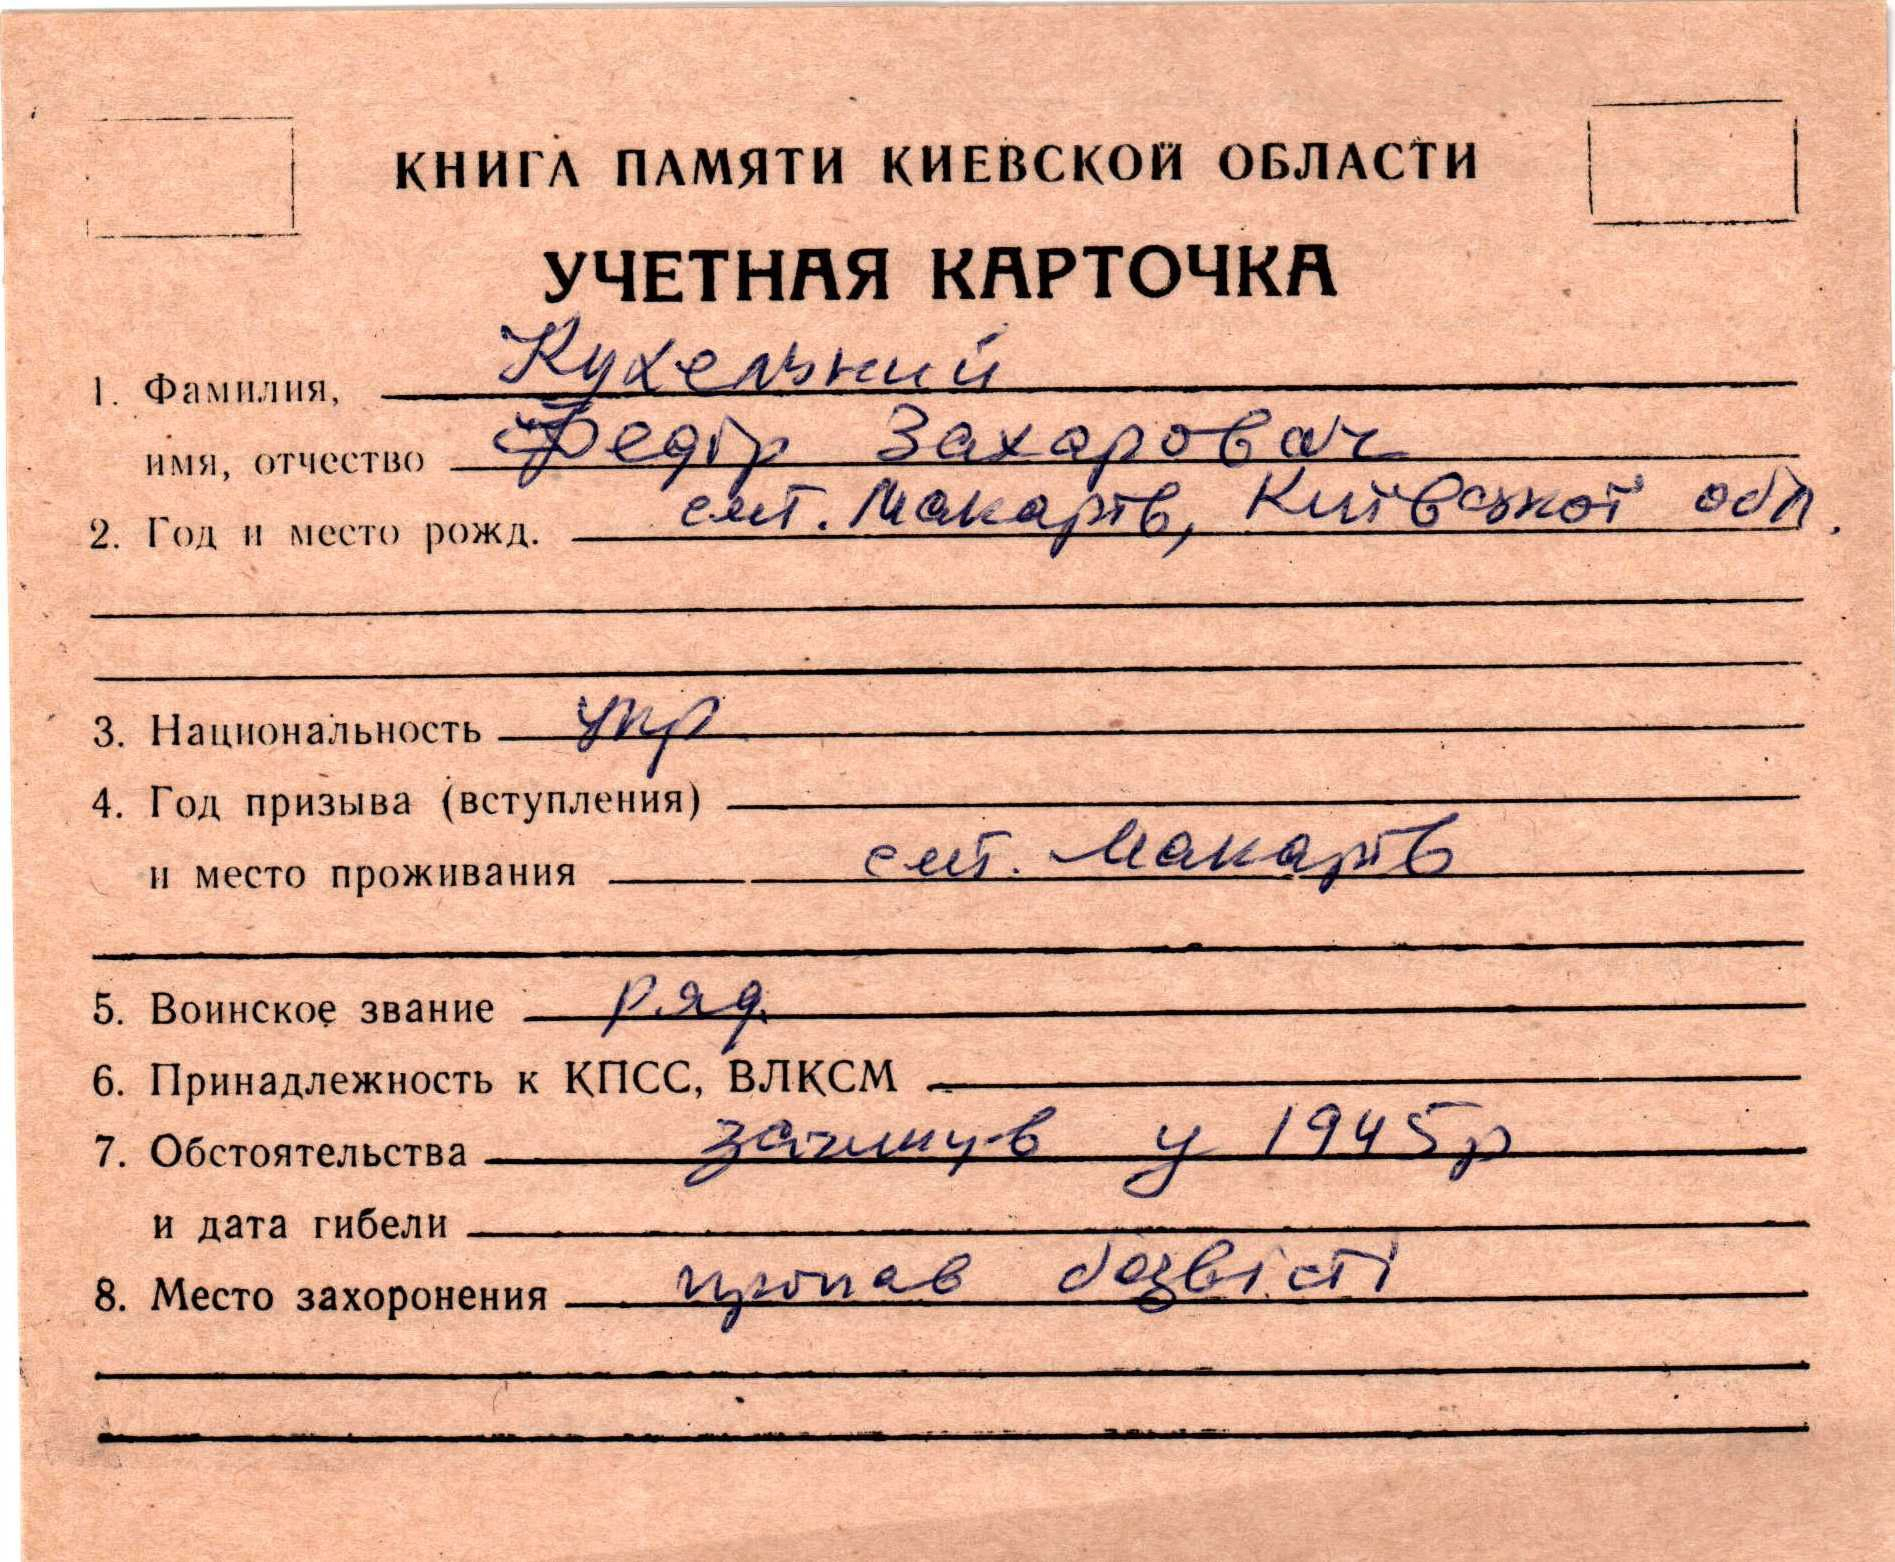 КНИГА ПАМЯТИ КИЕВСКОЙ ОБЛАСТИ
УЧЕТНАЯ КАРТОЧКА
1. Фамилия, Кухельний
имя, отчество Федір Захарович
2. Год и место рожд. смт. Макарів, Київської обл.
3. Национальность укр
4. Год призыва (вступления)
и место проживания смт. Макарів
5. Воинское звание ряд.
6. Принадлежность к КПСС, ВЛКСМ
7. Обстоятельства загинув у 1945р
и дата гибели
8. Место захоронения пропав безвісті